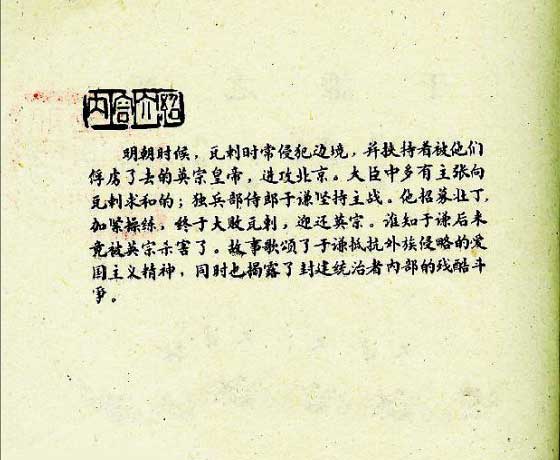 内容介绍
明朝时候，瓦剌时常侵犯边境，并挟持着被他们
俘虏了去的英宗皇帝，进攻北京。大臣中多有主张向
瓦剌求和的；独兵部侍郎于谦坚持主战。他招募壮丁，
加紧操练，终于大败瓦剌，迎还英宗。谁知于谦后来
竟被英宗杀害了。故事歌颂了于谦抵抗外族侵略的爱
国主义精神，同时也揭露了封建统治者内部的残酷斗
争。